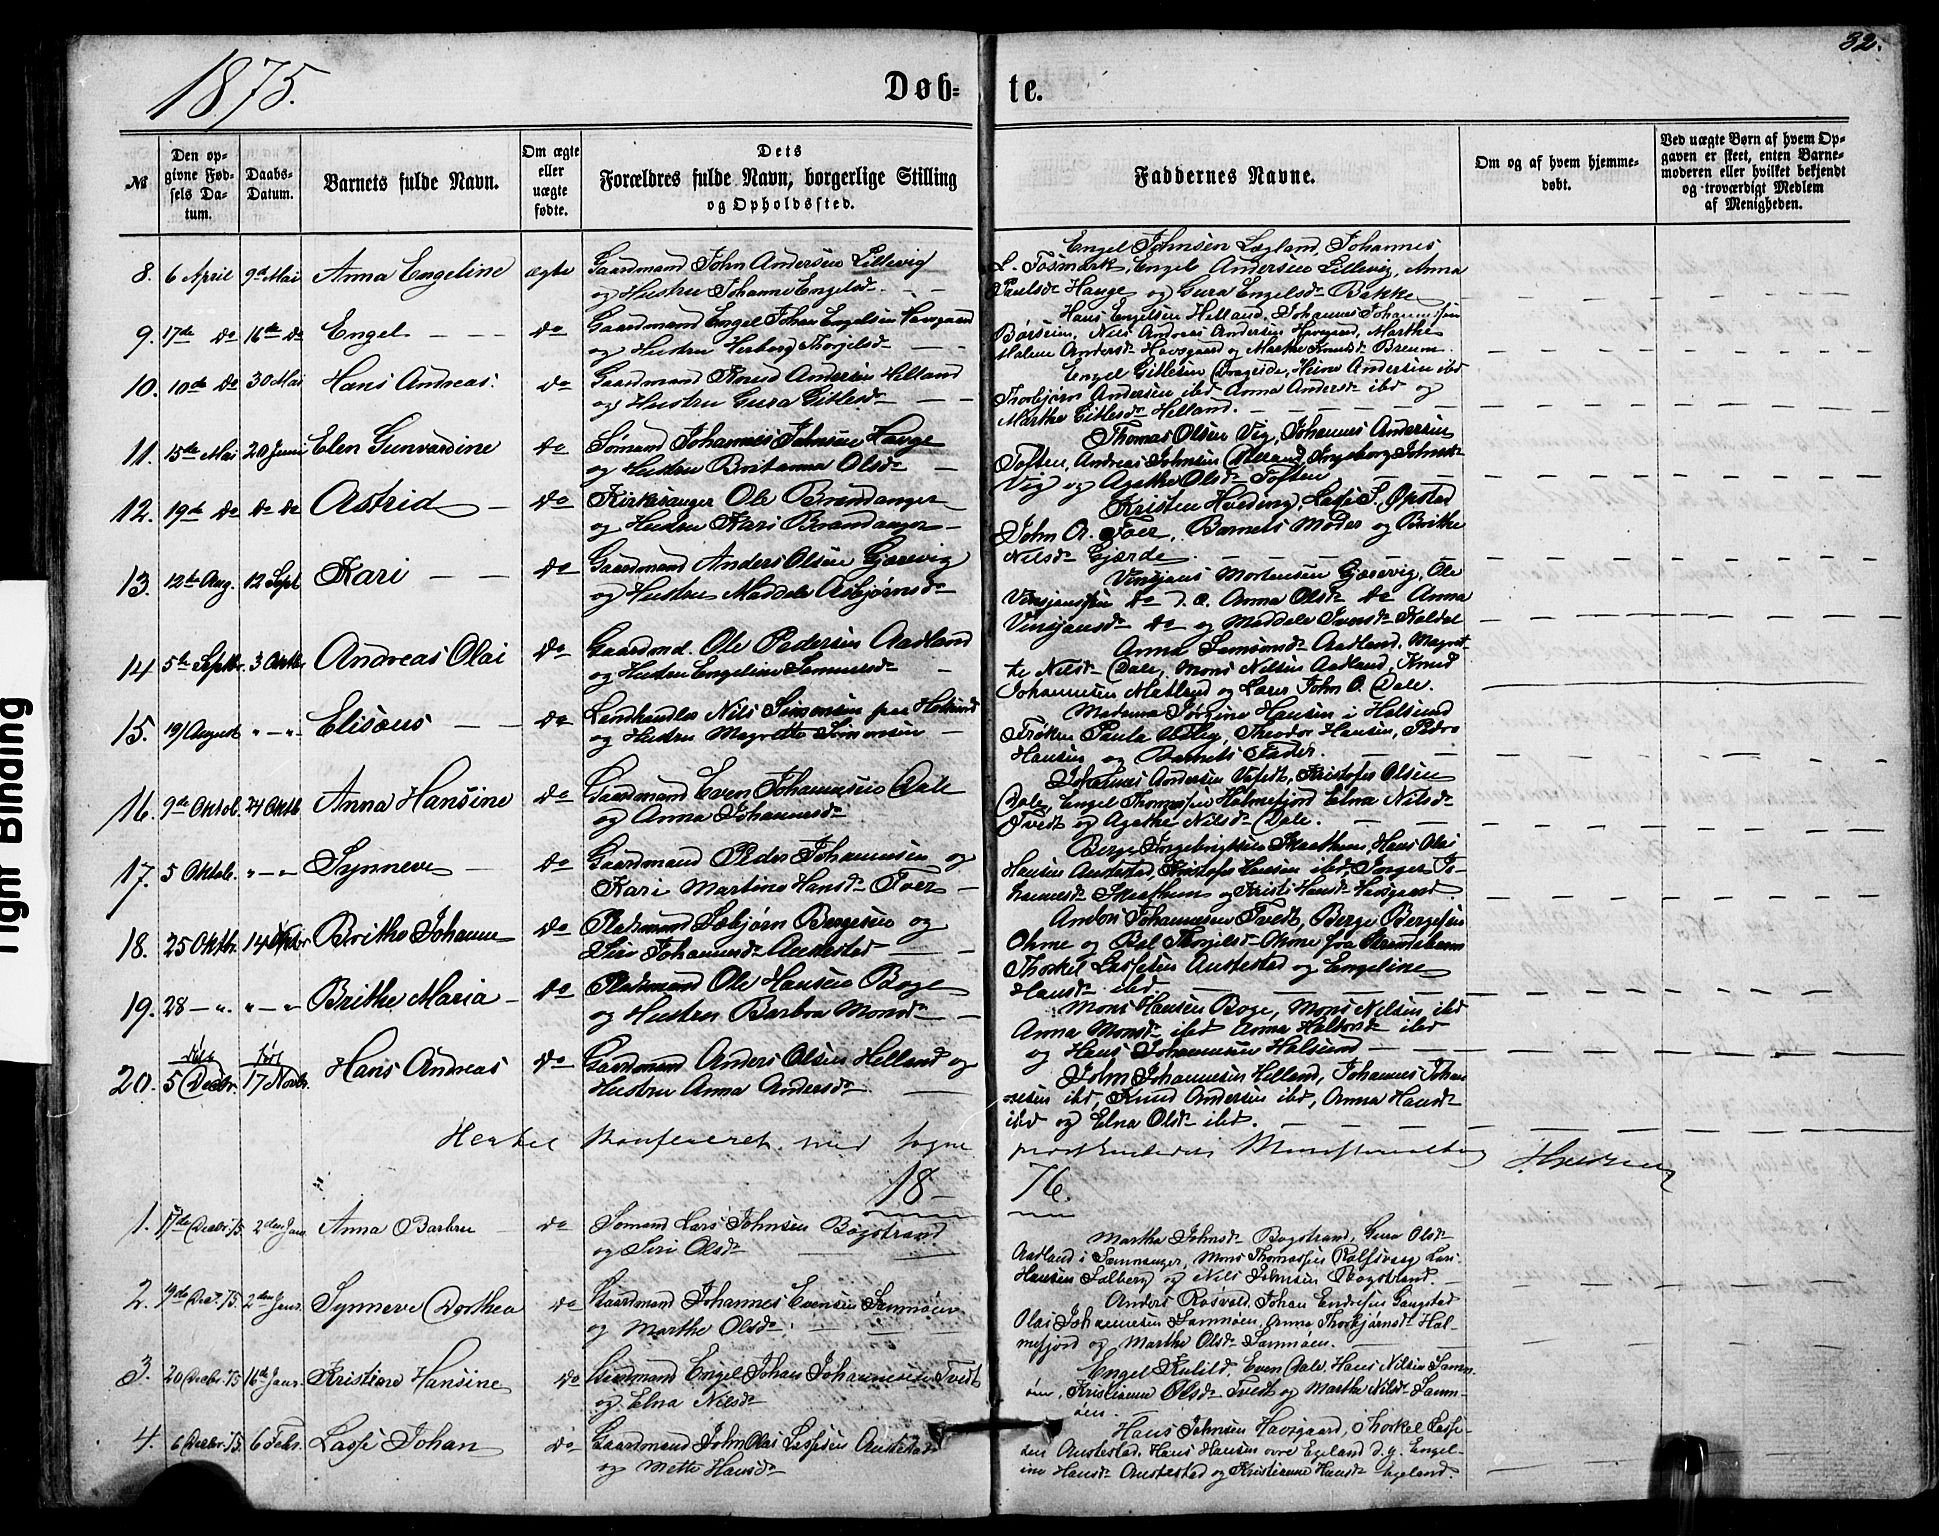 32.
1875.
Døb= te.
№
Den op-
givne Fød-
sels Da-
tum.
Daabs-
Datum.
Barnets fulde Navn.
Om ægte
eller
uægte
fødte.
Dets
Forældres fulde Navn, borgerlige Stilling
og Opholdssted.
Faddernes Navne.
Om og af hvem hjemme-
døbt.
Ved uægte Børn af hvem Op-
gaven er skeet, enten Barne-
moderen eller hvilket bekjendt
og troværdigt Medlem
af Menigheden.
8. 6 April 9de Mai Anna Engeline ægte Gaardmand John Andersen Lillevig
og Hustru Johanne Engelsdr
Engel Johnsen Lægland, Johannes
L. Tosmark, Engel Andersen Lillevig, Anna
Paulsdr Hauge og Gura Engelsdr Bakke
9. 17de do 16de do Engel do Gaardmand Engel Johan Engelsen Havgaard
og Hustru Herborg Thorjelsdr
Hans Engelsen Helland, Johannes Johannesen
Børseim, Nils Andreas Andersen Havgaard, Marthe
Malene Andersdr Havsgaard og Marthe Knudsdr Breum
10. 10de do 30 Mai Hans Andreas. do Gaardmand Knud Andersen Helland
og Hustru Gura Gitlesdr
Engel Gitlesen Drageide, Heine Andersen ibd
Thorbjørn Andersen ibd Anna Andersdr ibd og
Marthe Gitlesdr Helland.
11. 15de Mai 20 Juni Elen Gunvardine do Sømand Johannes Johnsen Hauge
og Hustru Britanna Olsdr
Thomas Olsen Vig, Johannes Andersen
Toften, Andreas Johnsen Helland, Ingeborg Johnsdr
Vig og Agathe Olsdr Toften
12. 19de do do do Astrid do Kirkesanger Ole Brandanger
og Hustru Kari Brandanger
Kristen Hveding, Lasse S. Opstad
John A. Toer, Barnets Moder og Brithe
Nilsdr Gjærde
13. 12te Aug. 12 Sept Kari do Gaardmand Anders Olsen Gjærevig
og Hustru Maddele Asbjørnsdr
Vinsjans Mortensen Gjærevig, Ole
Vinsjansen do d. æ. Anna Olsdr do Anna
Vinsjansdr do og Maddele Ivarsdr Koldal
14. 5te Septbr. 3 Octbr Andreas Olai do Gaardmd. Ole Pedersen Aadland
og Hustru Engeline Samuelsdr
Anna Samsonsdr Aadland, Magret-
te Nilsdr Dale, Mons Nilsen Aadland, Knud
Johannesen Matland og Lærer John O. Dale.
15. 19/August " — " Elisæus do Landhandler Nils Simonsen paa Holsund
og Hustru Magrethe Simonsen
Madame Jørgine Hansen i Holsund
Frøken Paula Udbey, Theodor Hansen, Pedro
Hansen og Barnets Fader.
16. 9de Oktob. 24 Oktb. Anna Hansine do Gaardmand Even Johannesen Dale
og Anna Johannesdr
Johannes Andersen Vefedt, Kristofer Olsen
Dale, Engel Thomassen Holmefjord Elna Nilsdr
Tvedt og Agathe Nilsdr Dale.
17. 5 Oktob. " — " Synneve do Gaardmand Peder Johannesen og
Kari Martine Hansdr Toer
Berge Ingebrigtsen Skaathun, Hans Olai
Hansen Austestad, Kristofer Hansen ibd, Inger Jo-
hannesdr Skaathun og Kristi Hansdr Havsgaard
18. 25 Oktbr. 14 Novbr Brithe Johanne do Pladsmand Asbjørn Bergesen og
Siri Johannesdr Austestad
Andon Johannesen Tvedt, Berge Bergesen
Ohme og Ral Thorjelsdr Ohme fra Strandebarm
Thorkel Lassesen Austestad og Engeline
Hansdr ibd
19. 28 — ". " — " Brithe Maria do Pladsmand Ole Hansen Boge
og Hustru Barbra Monsdr
Mons Hansen Boge, Mons Nilsen ibd
Anna Monsdr ibd Anna Halvorsdr ibd
og Hans Johannesen Holsund
20. 5 Decbr. 17 Novbr. Hans Andreas do Gaardmand Anders Olsen Helland og
Hustru Anna Andersdr
John Johannesen Helland, Johannes Johan
nesen ibd, Knud Andersen ibd, Anna Hansdr
ibd og Elna Olsdr ibd.
Konfereret med Sogne
præstembedets Ministerialbog Hveding
18 76.
1. 17de Decbr. 75 2den Janr Anna Barbru do Sømand Lars Johnsen Bogstrand
og Siri Olsdr
Martha Johnsdr Bogstrand, Gura Olsdr
Aadland i Samnanger, Mons Thomassen Rolfsvaag Lars
Hansen Solberg og Nils Johnsen Bogstrand.
2. 19de Decbr. 75. 2den Janr. Synneve Dorthea do Gaardmand Johannes Evensen Samnøen
og Marthe Olsdr
Anders Røsvold, Johan Endresen Gangstad
Olai Johannesen Samnøen, Anna Thorbjørnsdr Hol-
mefjord og Marthe Olsdr Samnøen.
3. 20 Decbr 75 16de Janr. Kristiane Hansine do Gaardmand Engel Johan Johannesen Tvedt
og Elna Nilsdr
Engel Kulild, Even Dale, Hans Nilsen Samn-
øen, Kristianne Olsdr Tvedt og Marthe Nilsdr Samn-
øen.
4. 6 Decbr. 75 6 Febr. Lasse Johan do Gaardmand John Olai Lassesen Austestad
og Mette Hansdr
Hans Johnsen Havsgaard, Thorkel Lasse-
sen Austestad, Hans Hansen øvre Egeland d. y. Engel-
ine Hansdr Austestad og Kristianne Hansdr Egeland.
Tight Binding